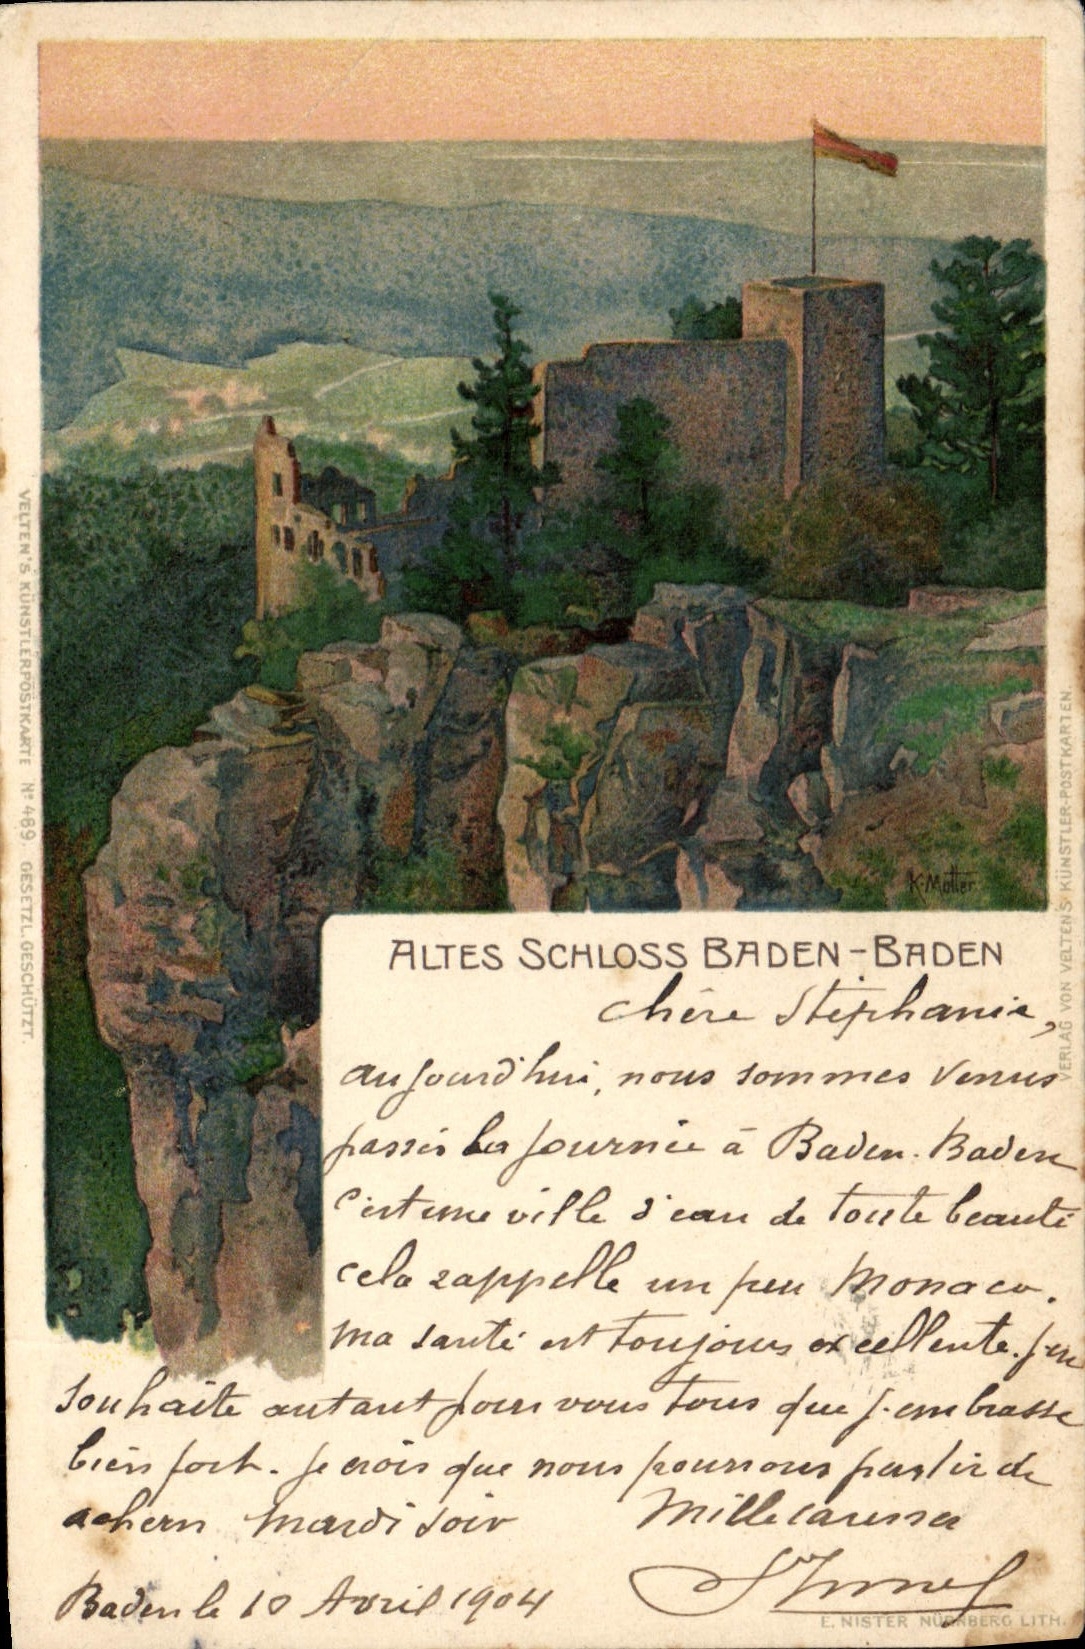 K. Mutter.
ALTES SCHLOSS BADEN-BADEN
chère Stéphanie,
aujourd'hui, nous sommes venus
passer la journée à Baden-Baden
C'est une ville d'eau de toute beauté
cela rappelle un peu Monaco.
Ma santé est toujours excellente. J'en
souhaite autant pour vous tous que j'embrasse
bien fort. Je crois que nous pourrons partir de
achern Mardi soir
Mille caresses
Baden le 10 Avril 1904
E. NISTER NÜRNBERG LITH.
VELTEN'S KÜNSTLERPOSTKARTE No 489. GESETZL. GESCHÜTZT.
VERLAG VON VELTENS KÜNSTLER-POSTKARTEN.